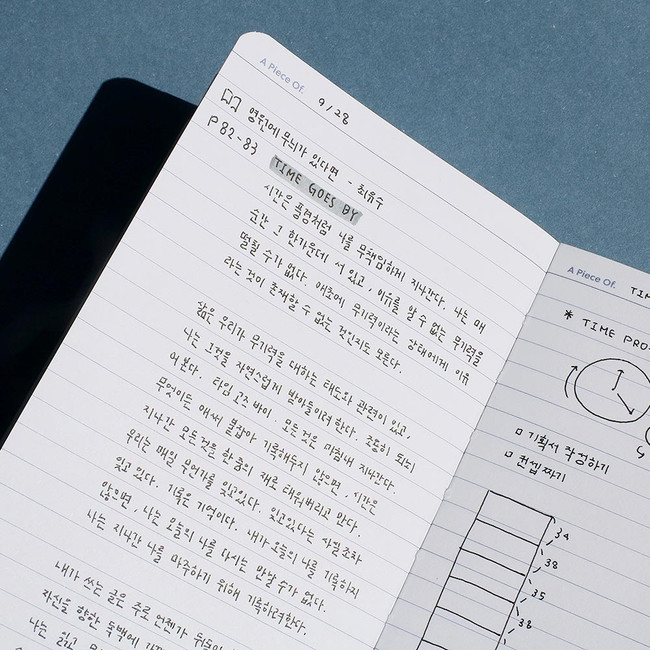 A Piece Of. 9/28
영원에 무늬가 있다면 - 최유수
P 82-83
TIME GOES BY
시간은 풍경처럼 나를 무책임하게 지나간다. 나는 매
순간 그 한가운데 서 있고, 이유를 알 수 없는 무기력을
떨칠 수가 없다. 애초에 무기력이라는 상태에게 이유
라는 것이 존재할 수 없는 것인지도 모른다.
삶은 우리가 무기력을 대하는 태도와 관련이 있고,
나는 그것을 자연스럽게 받아들이려 한다. 조등히 되뇌
어본다. 타임 고즈 바이. 모든 것은 마침내 지나간다.
무엇이든 애써 붙잡아 기록해두지 않으면, 시간은
지나간 모든 것을 한 줌의 재로 태워버리고 만다.
우리는 매일 무언가를 잊고있다. 잊고있다는 사실조차
잊고 있다. 기록은 기억이다. 내가 오늘의 나를 기록하지
않으면, 나는 오늘의 나를 다시는 만날 수가 없다.
나는 지나간 나를 마주하기 위해 기록하려한다.
내가 쓰는 글은 주로 언젠가
자신을 향한 독백에
나는 읽고
A Piece Of. TIM
* TIME PRO
기획서 작성하기
컨셉짜기
34
38
35
38